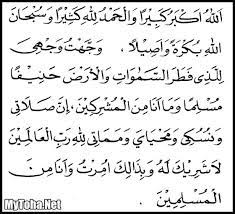 اَللهُ اَكْبَرُ كَبِيْرًا وَالْحَمْدُ لِلّٰهِ كَثِيْرًا وَسُبْحَانَ
اللهِ بُكْرَةً وَاَصِيْلًا ، وَجَّهْتُ وَجْهِيَ
لِلَّذِيْ فَطَرَ السَّمٰوَاتِ وَالْاَرْضَ حَنِيْفًا
مُسْلِمًا وَمَا اَنَا مِنَ الْمُشْرِكِيْنَ ، اِنَّ صَلَاتِيْ
وَنُسُكِيْ وَمَحْيَايَ وَمَمَاتِيْ لِلّٰهِ رَبِّ الْعَالَمِيْنَ
لَا شَرِيْكَ لَهُ وَبِذَالِكَ اُمِرْتُ وَاَنَا مِنَ
الْمُسْلِمِيْنَ .
MyToba.Net